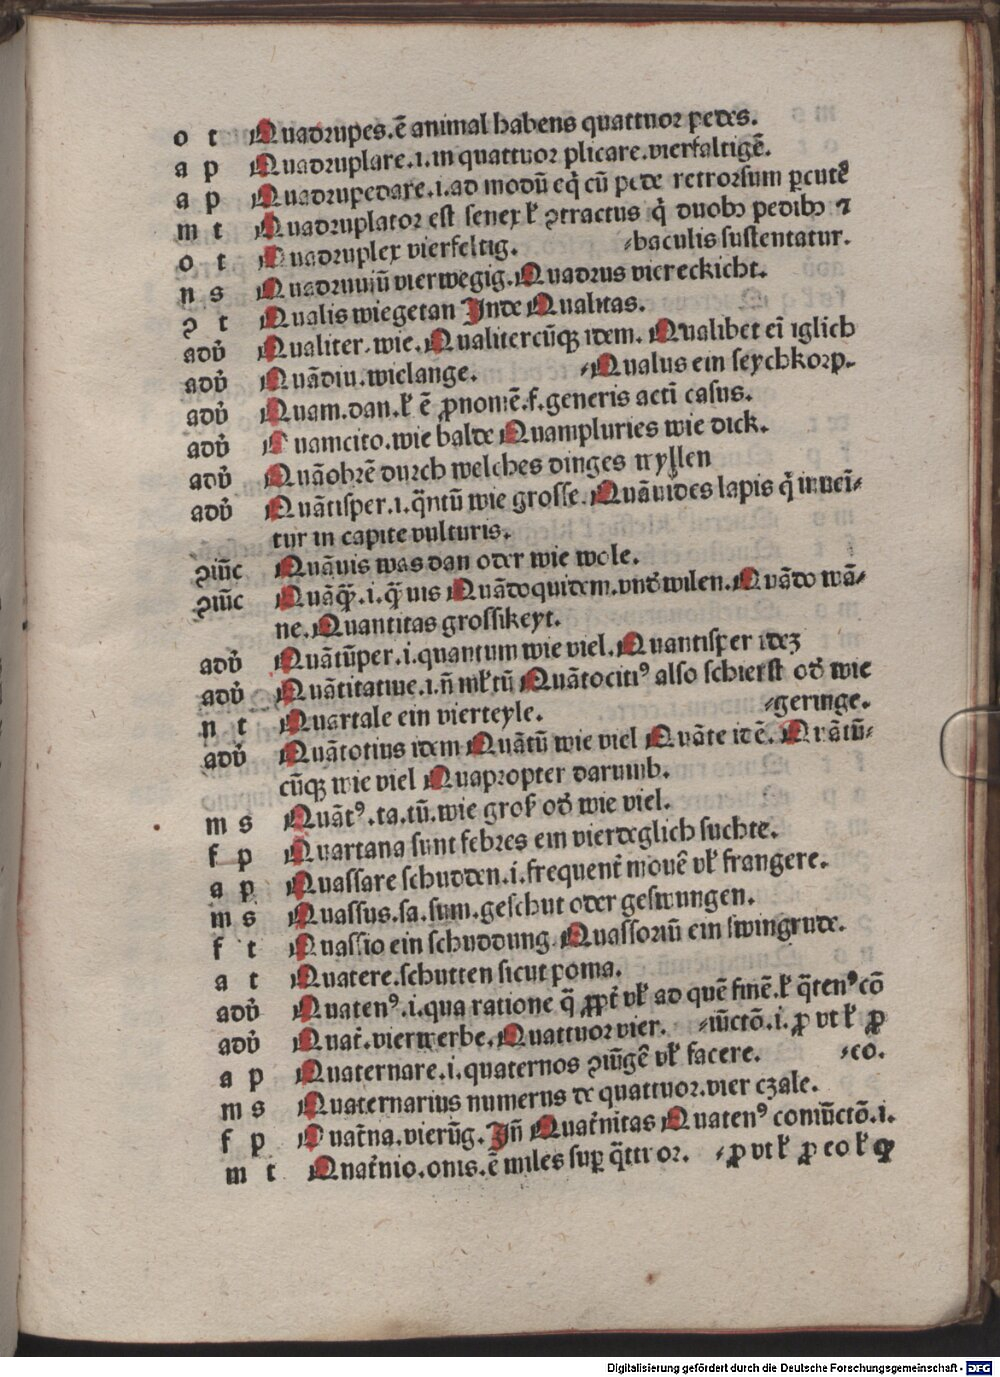 o t Quadrupes.ē animal habens quattuor pedes.
a p Quadruplare.i.in quattuor plicare.vierfaltigē.
a p Quadrupedare.i.ad modū eq̄ cū pede retrorsum ꝑcutē
m t Quadruplator est senex ꝉ ↄtractus q̇ duobꝫ pedibꝫ ⁊
o t Quadruplex vierfeltig. -baculis sustentatur.
n s Quadruuiū vierwegig.Quadrus viereckicht.
ↄ t Qualis wiegetan Inde Qualitas.
adv̓ Qualiter.wie.Qualitercūqꝫ idem.Qualibet eī iglich
adv̓ Quādiu.wielange. -Qualus ein seychkorp.
adv̓ Quam.dan.ꝉ ē ꝓnomē.f.generis acti casus.
adv̓ Quamcito.wie balde Quampluries wie dick.
adv̓ Quāobrē durch welches dinges wyllen
adv̓ Quātisper.i.q̄ntū wie grosse.Quāuides lapis q̇ inueī-
tur in capite vulturis.
ↄiūc Quāuis was dan oder wie wole.
ↄiūc Quāꝙ̄.i.ꝙ̄uis Quādoquidem.vnd̓ wilen.Quādo wā-
ne.Quantitas grossikeyt.
adv̓ Quātūper.i.quantum wie viel.Quantisper ideꝫ
adv̓ Quātitatiue.i.n̄ mꝉtū Quātocitiꝰ also schierst od̓ wie
n t Quartale ein vierteyle. -geringe.
adv̓ Quātotius idem Quātū wie viel Quāte idē.Quātū-
cūqꝫ wie viel Quapropter darumb.
m s Quātꝰ.ta.tū.wie groß od̓ wie viel.
f p Quartana sunt febres ein vierdeglich suchte.
a p Quassare schudden.i.frequent̄ mouē vꝉ frangere.
m s Quassus.sa.sum.geschut oder geswungen.
f t Quassio ein schuddung.Quassoriū ein swingrude.
a t Quatere.schutten sicut poma.
adv̓ Quatenꝰ.i.qua ratione q̄ ꝓpt̄ vꝉ ad quē finē.ꝉ q̄tenꝰ cō
adv̓ Quat̄.vierwerbe.Quattuor vier. -iūctō.i.ꝓ vt ꝉ ꝓ
a p Quaternare.i.quaternos ↄiūgē vꝉ facere. -eo.
m s Quaternarius numerus de quattuor.vier czale.
f p Quat̄na.vierūg.In̄ Quat̄nitas Quatenꝰ coniūctō.i.
m t Quat̄nio.onis.ē miles suꝑ q̄ttuor. -ꝓ vt ꝉ ꝓ eo ꝉ ꝙ
Digitalisierung gefördert durch die Deutsche Forschungsgemeinschaft - DFG